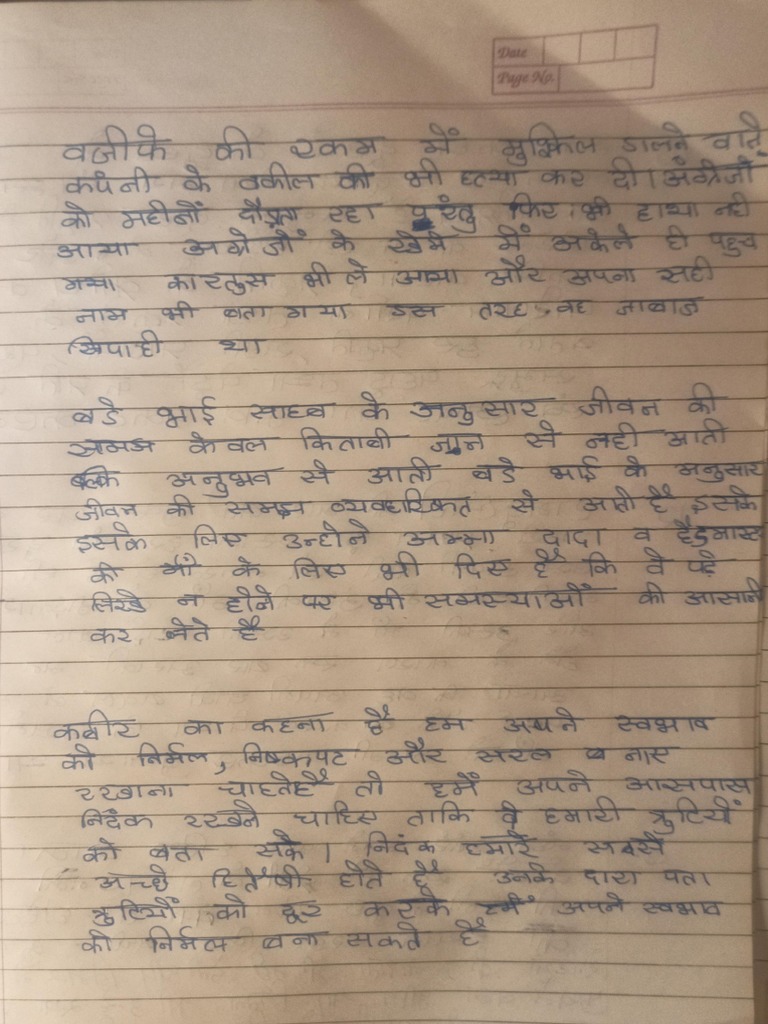 Date
Page No.
वजीफे की रकम में मुश्किल डालने वाले
कंपनी के वकील की भी हत्या कर दी। अंग्रेजों
को महीनों दौड़ता रहा परंतु फिर भी हाथा नही
आया अग्रेजों के खेमे में अकेले ही पहुच
गया कारतुस भी ले आया और अपना सही
नाम भी बता गया इस तरह वह जाबाज
सिपाही था
बडे भाई साहब के अनुसार जीवन की
समझ केवल किताबी ज्ञान से नही आती
बल्कि अनुभव से आती बडे भाई के अनुसार
जीवन की समझ व्यवहारिकत से आती है इसके
इसके लिए उन्होने अम्मा दादा व हैडमास्ट
की माँ के लिए भी दिए है कि वे पढे
लिखे न होने पर भी समस्याओं की आसानी
कर लेते है
कबीर का कहना है हम अपने स्वभाव
को निर्मल, निष्कपट और सरल बनाए
रखाना चाहतेहै तो हमें अपने आसपास
निदंक रखने चाहिए ताकि वे हमारी त्रुटियों
को बता सके। निदंक हमारे सबसे
अच्छे हितैषी होते है उनके दारा बता
त्रुटियों को दूर करके हम अपने स्वभाव
को निर्मल बना सकते है